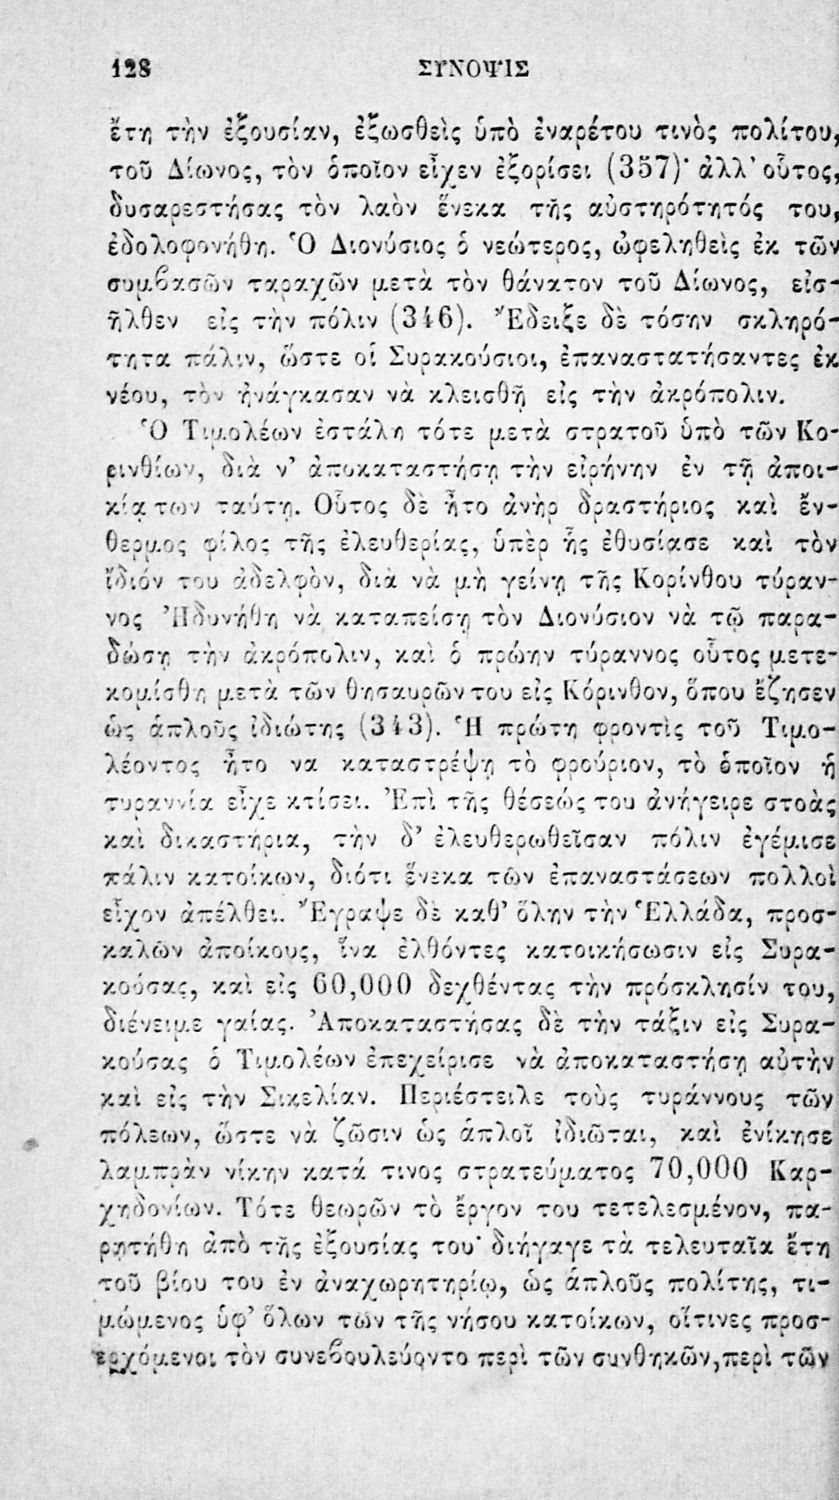 128 ΣΥΝΟΨΙΣ
ἔτη τὴν ἐξουσίαν, ἐξωσθεὶς ὑπὸ ἐναρέτου τινὸς πολίτου,
τοῦ Δίωνος, τὸν ὁποῖον εἶχεν ἐξορίσει (357)· ἀλλ' οὗτος,
δυσαρεστήσας τὸν λαὸν ἕνεκα τῆς αὐστηρότητός του,
ἐδολοφονήθη. Ὁ Διονύσιος ὁ νεώτερος, ὠφεληθεὶς ἐκ τῶν
συμβασῶν ταραχῶν μετὰ τὸν θάνατον τοῦ Δίωνος, εἰσ-
ῆλθεν εἰς τὴν πόλιν (346). Ἔδειξε δὲ τόσην σκληρό-
τητα πάλιν, ὥστε οἱ Συρακούσιοι, ἐπαναστατήσαντες ἐκ
νέου, τὸν ἠνάγκασαν νὰ κλεισθῇ εἰς τὴν ἀκρόπολιν.
Ὁ Τιμολέων ἐστάλη τότε μετὰ στρατοῦ ὑπὸ τῶν Κο-
ρινθίων, διὰ ν' ἀποκαταστήσῃ τὴν εἰρήνην ἐν τῇ ἀποι-
κίᾳ των ταύτῃ. Οὗτος δὲ ἦτο ἀνὴρ δραστήριος καὶ ἔν-
θερμος φίλος τῆς ἐλευθερίας, ὑπὲρ ἧς ἐθυσίασε καὶ τὸν
ἴδιόν του ἀδελφὸν, διὰ νὰ μὴ γείνῃ τῆς Κορίνθου τύραν-
νος Ἠδυνήθη νὰ καταπείσῃ τὸν Διονύσιον νὰ τῷ παρα-
δώσῃ τὴν ἀκρόπολιν, καὶ ὁ πρώην τύραννος οὗτος μετε-
κομίσθη μετὰ τῶν θησαυρῶν του εἰς Κόρινθον, ὅπου ἔζησεν
ὡς ἁπλοῦς ἰδιώτης (343). Ἡ πρώτη φροντὶς τοῦ Τιμο-
λέοντος ἦτο να καταστρέψῃ τὸ φρούριον, τὸ ὁποῖον ἡ
τυραννία εἶχε κτίσει. Ἐπὶ τῆς θέσεώς του ἀνήγειρε στοὰς
καὶ δικαστήρια, τὴν δ' ἐλευθερωθεῖσαν πόλιν ἐγέμισε
πάλιν κατοίκων, διότι ἕνεκα τῶν ἐπαναστάσεων πολλοὶ
εἶχον ἀπέλθει. Ἔγραψε δὲ καθ' ὅλην τὴν Ἑλλάδα, προσ-
καλῶν ἀποίκους, ἵνα ἐλθόντες κατοικήσωσιν εἰς Συρα-
κούσας, καὶ εἰς 60,000 δεχθέντας τὴν πρόσκλησίν του,
διένειμε γαίας. Ἀποκαταστήσας δὲ τὴν τάξιν εἰς Συρα-
κούσας ὁ Τιμολέων ἐπεχείρισε νὰ ἀποκαταστήσῃ αὐτὴν
καὶ εἰς τὴν Σικελίαν. Περιέστειλε τοὺς τυράννους τῶν
πόλεων, ὥστε νὰ ζῶσιν ὡς ἁπλοῖ ἰδιῶται, καὶ ἐνίκησε
λαμπρὰν νίκην κατά τινος στρατεύματος 70,000 Καρ-
χηδονίων. Τότε θεωρῶν τὸ ἔργον του τετελεσμένον, πα-
ρῃτήθη ἀπὸ τῆς ἐξουσίας του· διήγαγε τὰ τελευταῖα ἔτη
τοῦ βίου του ἐν ἀναχωρητηρίῳ, ὡς ἁπλοῦς πολίτης, τι-
μώμενος ὑφ' ὅλων τῶν τῆς νήσου κατοίκων, οἵτινες προσ-
ερχόμενοι τὸν συνεβουλεύοντο περὶ τῶν συνθηκῶν, περὶ τῶν